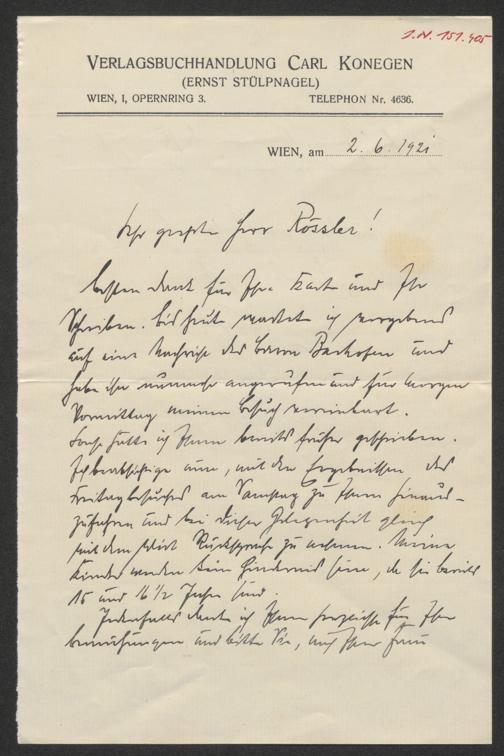 J.N. 151.405
VERLAGSBUCHHANDLUNG CARL KONEGEN
(ERNST STÜLPNAGEL)
WIEN, I, OPERNRING 3. TELEPHON Nr. 4636.
WIEN, am 2. 6. 1921
Sehr geehrter Herr Rössler!
besten Dank für Ihre Karte und Ihr
Schreiben. Bis heute wartete ich vergebens
auf eine Nachricht des Baron Bachofen und
habe ihn nunmehr angerufen und für morgen
Vormittag meinen Besuch vereinbart.
Sonst hätte ich Ihnen bereits früher geschrieben.
Ich beabsichtige nun, mit den Ergebnissen des
Freitagbesuches am Samstag zu Ihnen hinaus-
zufahren und bei dieser Gelegenheit gleich
mit dem Rücksprache zu nehmen. Meine
Kinder werden kein Hindernis sein, da sie bereits
15 und 16 1/2 Jahre sind.
Jedenfalls danke ich Ihnen herzlichst für Ihre
Bemühungen und bitte Sie, auch Ihrer Frau